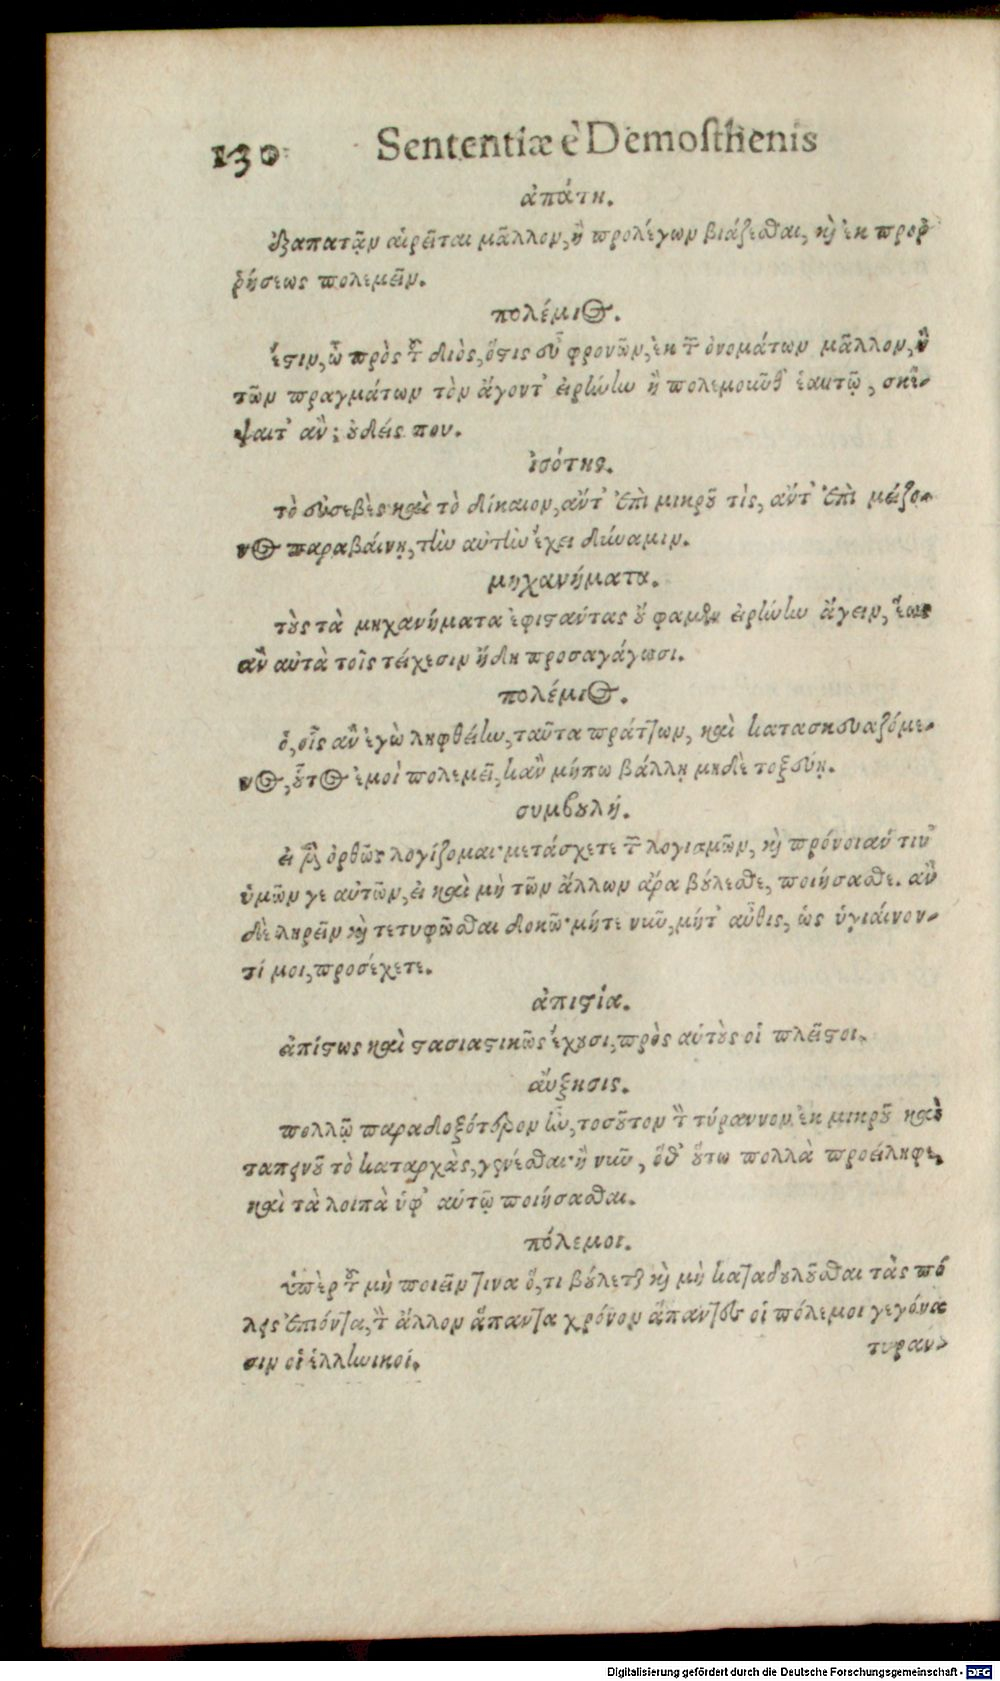 130 Sententiæ è Demosthenis
ἀπάτη.
ἐξαπατᾷν αἱρεῖται μᾶλλον, ἢ προλέγων βιάζεσθαι, καὶ ἐκ προῤ
ῥήσεως πολεμεῖν.
πολέμιος.
ἔστιν, ὦ πρὸς τοῦ διὸς, ὅστις εὖ φρονῶν, ἐκ τῶν ὀνομάτων μᾶλλον, ἢ
τῶν πραγμάτων τὸν ἄγοντ’ εἰρήνην ἢ πολεμοῦνθ’ ἑαυτῷ, σκέ-
ψαιτ’ ἂν; οὐδείς που.
ἰσότης.
τὸ εὐσεβὲς καὶ τὸ δίκαιον, ἄν τ’ ἐπὶ μικροῦ τὶς, ἄν τ’ ἐπὶ μείζο-
νος παραβαίνῃ, τὴν αὐτὴν ἔχει δύναμιν.
μηχανήματα.
τοὺς τὰ μηχανήματα ἐφιστάντας οὔ φαμεν εἰρήνην ἄγειν, ἕως
ἂν αὐτὰ τοῖς τείχεσιν ἤδη προσαγάγωσι.
πολέμιος.
ὁ, οἷς ἂν ἐγὼ ληφθείην, ταῦτα πράττων, καὶ κατασκευαζόμε-
νος, οὗτος ἐμοὶ πολεμεῖ, κἂν μήπω βάλλῃ μηδὲ τοξεύῃ.
συμβουλή.
εἰ μὲν ὀρθῶς λογίζομαι· μετάσχετε τῶν λογισμῶν, καὶ πρόνοιάν τιν’
ὑμῶν γε αὐτῶν, εἰ καὶ μὴ τῶν ἄλλων ἄρα βούλεσθε, ποιήσασθε. ἂν
δὲ ληρεῖν καὶ τετυφῶσθαι δοκῶ· μήτε νῦν, μήτ’ αὖθις, ὡς ὑγιαίνον-
τί μοι, προσέχετε.
ἀπιστία.
ἀπίστως καὶ στασιαστικῶς ἔχουσι, πρὸς αὑτοὺς οἱ πλεῖστοι.
αὔξησις.
πολλῷ παραδοξότερον ἦν, τοσοῦτον τὸν τύραννον ἐκ μικροῦ καὶ
ταπεινοῦ τὸ καταρχὰς, γενέσθαι· ἢ νῦν, ὅθ’ οὕτω πολλὰ προείληφε,
καὶ τὰ λοιπὰ ὑφ’ αὑτῷ ποιήσασθαι.
πόλεμοι.
ὑπὲρ τοῦ μὴ ποιεῖν τινα ὅ, τι βούλεται καὶ μὴ καταδουλοῦσθαι τὰς πό
λεις ἐπιόντα, τὸν ἄλλον ἅπαντα χρόνον ἅπαντες οἱ πόλεμοι γεγόνα
σιν οἱ ἑλληνικοί.
τυραν-
Digitalisierung gefördert durch die Deutsche Forschungsgemeinschaft - DFG